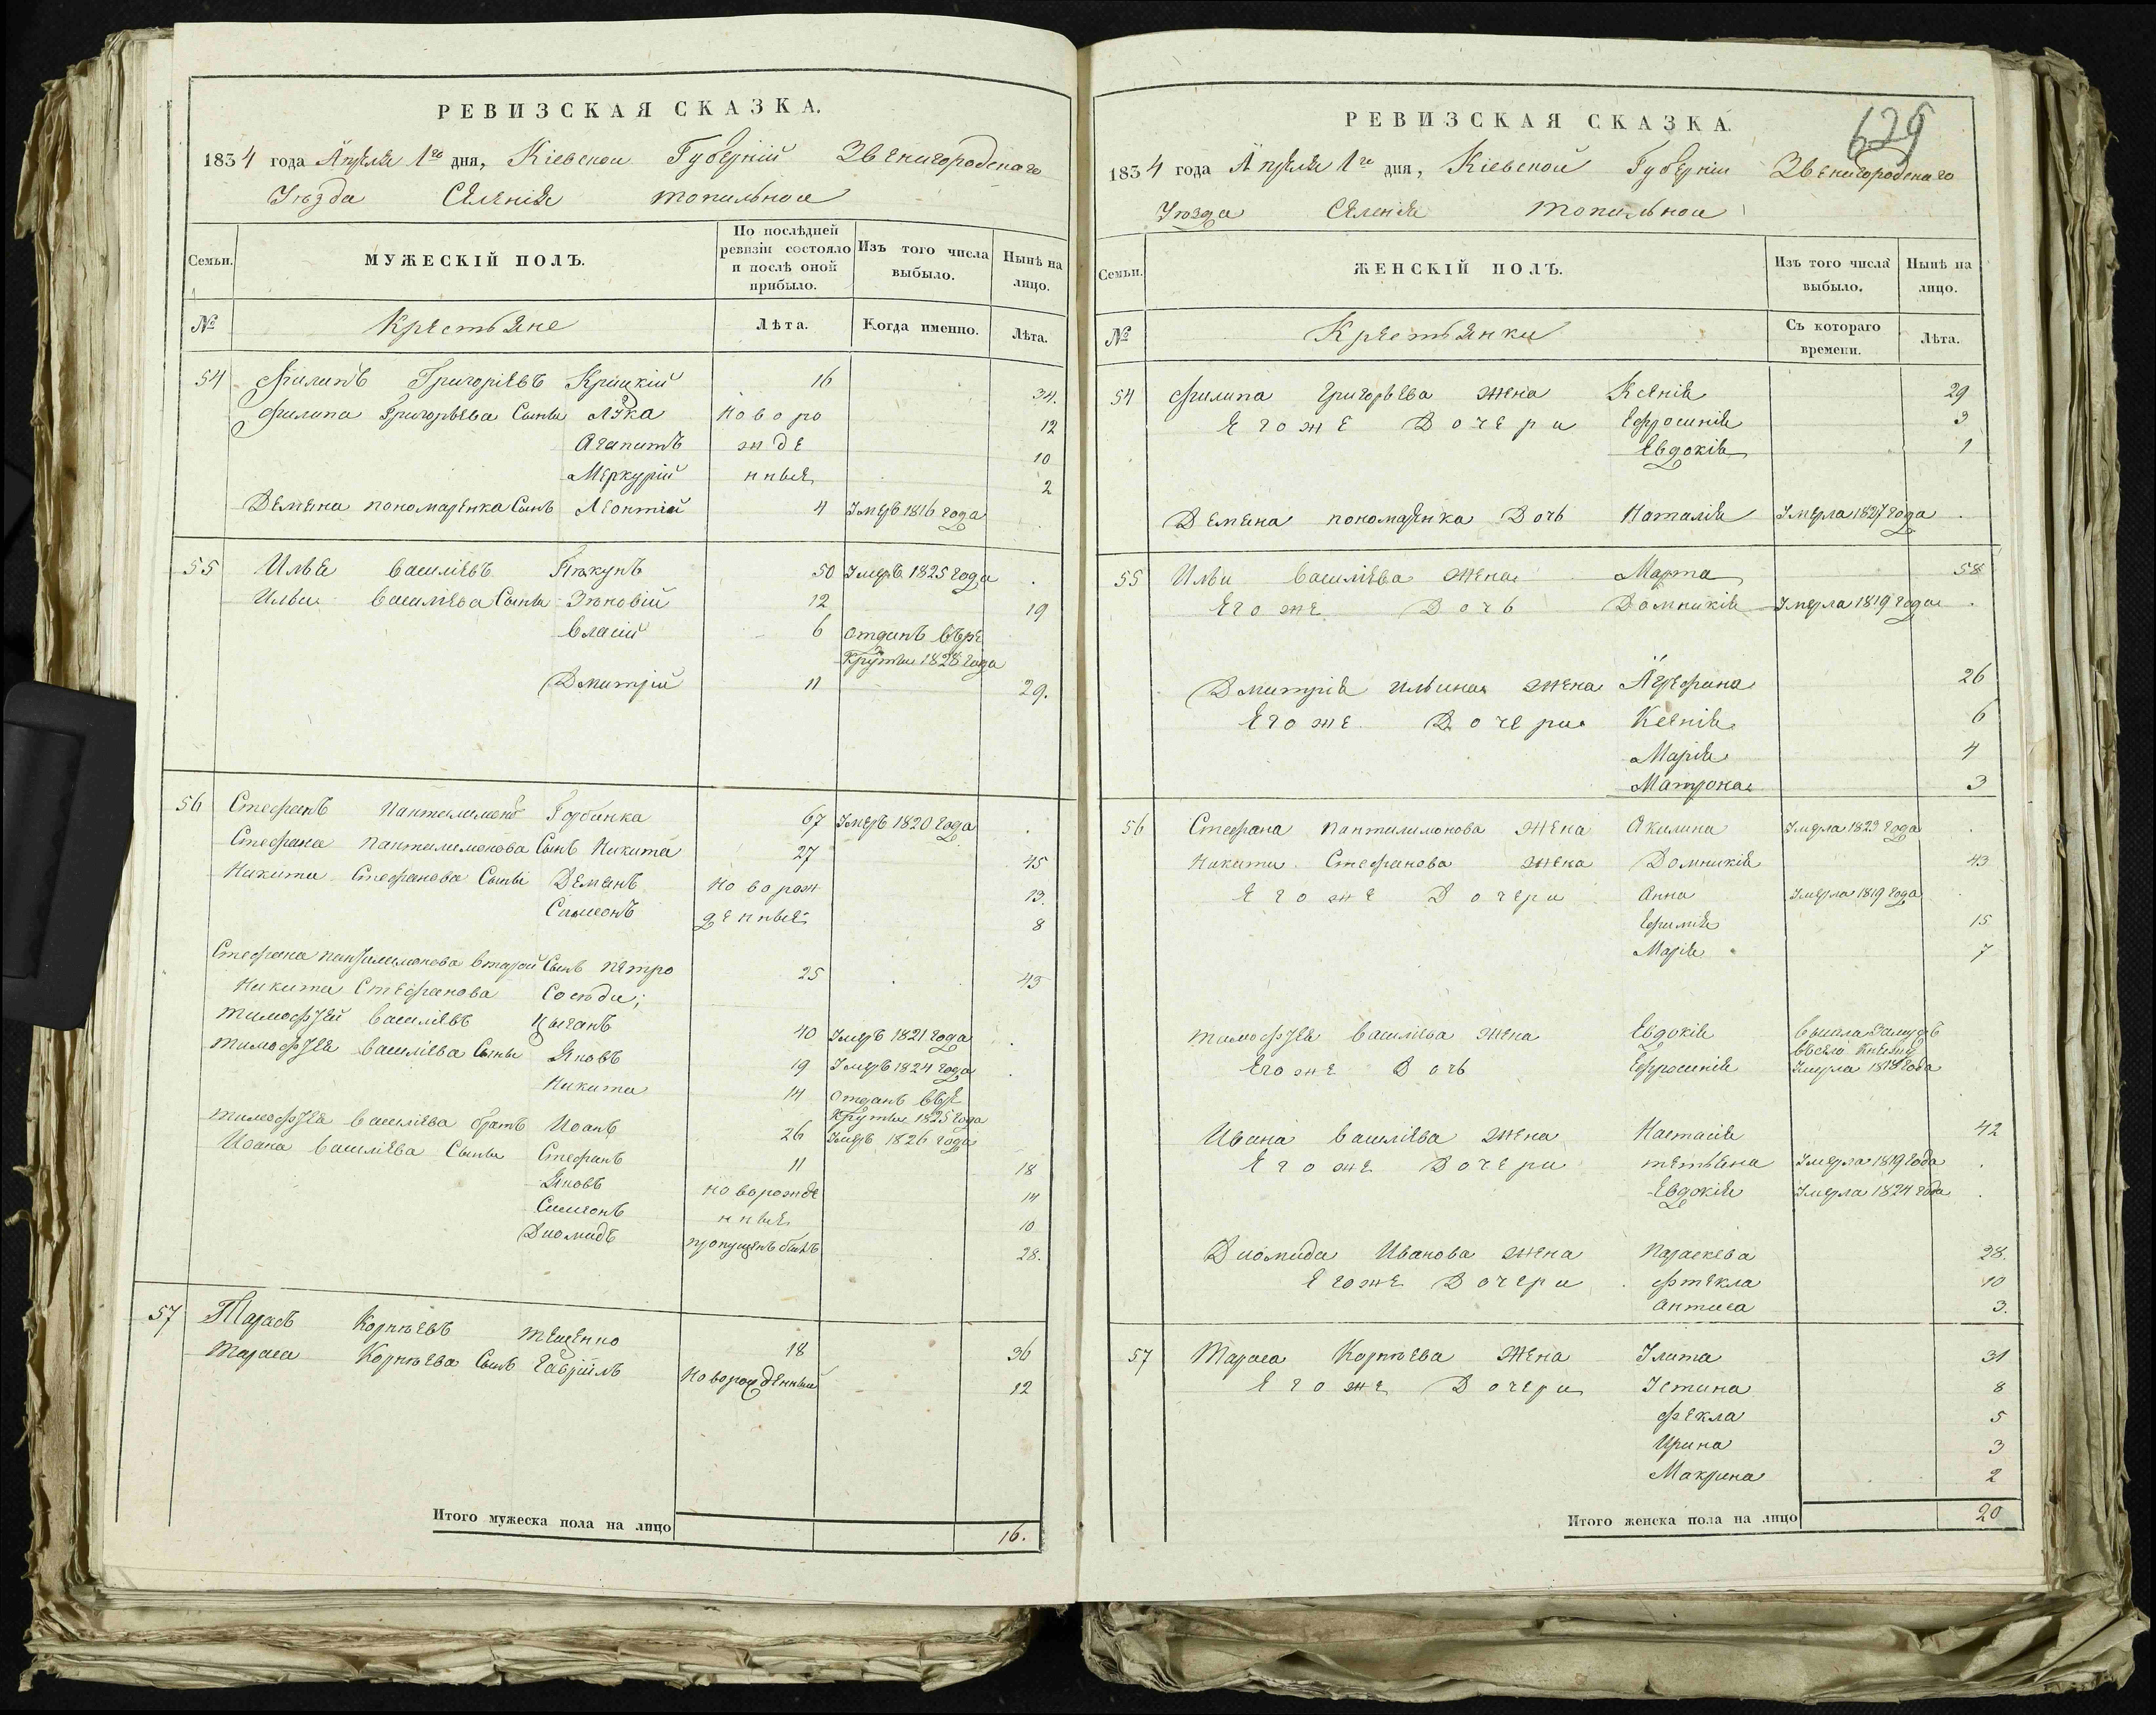 РЕВИЗСКАЯ СКАЗКА.
1834 года Апреля 1го дня, Кіевской Губерніи Звенигородскаго
Уезда Селенія топильной
Семьи.
МУЖЕСКІЙ ПОЛЪ.
По послѣдней ревизіи состояло и послѣ оной прибыло.
Изъ того числа выбыло.
Нынѣ на лицо.
№ Крестьяне Лѣта. Когда именно. Лѣта.
54 Филипъ Григоріевъ Крицкій 16 34.
Филипа Григорьева Сыны Лука ново ро 12
Агапитъ жде 10
Меркурій нные 2
Демяна пономаренка Сынъ Леонтій 4 Умеръ 1816 года
55 Илья Василіевъ 50 Умеръ 1825 года
Ильи Василіева Сыны Зѣновій 12 19
Власій 6 отданъ въре
круты 1828 года
Дмитрій 11 29.
56 Стефанъ Пантелимоновъ Горбинка 67 Умеръ 1820 года
Стефана Пантилимонова Сынъ Никита 27 45
Никити Стефанова Сыны Демянъ новорож 13.
Самсонъ денные 8
Стефана Пантилимонова второй Сынъ Петро 25 43
Никита Стефанова Соседи;
Тимофѣй Василіевъ Цыганъ 40 Умеръ 1821 года
Тимофѣя Василіева Сыны Яковъ 19 Умеръ 1824 года
Никита 14 отданъ въре
круты 1825 года
Тимофѣя Василіева братъ Иванъ 26 Умеръ 1826 года
Ивана Василіева Сыны Стефанъ 11 18
Яковъ новорожде 14
Симеонъ нные 10
Диомидъ пропущенъ былъ 28.
57 Тарасъ Корнѣевъ тещенко 18 36
Тараса Корнѣева Сынъ Гавріилъ новорожденный 12
Итого мужеска пола на лицо 16.
629
РЕВИЗСКАЯ СКАЗКА.
1834 года Апреля 1го дня, Кіевской Губерніи Звенигородскаго
Уѣзда Селенія топильной
Семьи.
ЖЕНСКІЙ ПОЛЪ.
Изъ того числа выбыло.
Нынѣ на лицо.
№ Крестьянки Съ котораго времени. Лѣта.
54 Филипа Григорьева жена Ксенія 29
Егоже Дочери Ефросинія 3
Евдокія 1
Демяна пономаренка Дочь Наталія Умерла 1827 года
55 Ильи Василіева жена Марта 58
Егоже Дочь Домникія Умерла 1819 года
Дмитрія ильина жена Агрефина 26
Егоже Дочери Ксенія 6
Марія 4
Матрона 3
56 Стефана Пантилимонова жена Акилина Умерла 1829 года
Никити Стефанова жена Домникія 43
Егоже Дочери Анна Умерла 1819 года
Ефимія 15
Марія 7
Тимофѣя Василіева жена Евдокія вышла замужъ
Егоже Дочь Ефросинія Умерла 1818 года
Ивана Василіева жена Настасія 42
Егоже Дочери тетьяна Умерла 1819 года
Евдокія Умерла 1824 года
Диомида Иванова жена Параскева 28.
Егоже Дочери Фтекла 10
Антиса 3.
57 Тараса Корнѣева жена Улита 31
Егоже Дочери Устина 8
Фекла 5
Ирина 3
Макрина 2
Итого женска пола на лицо 20